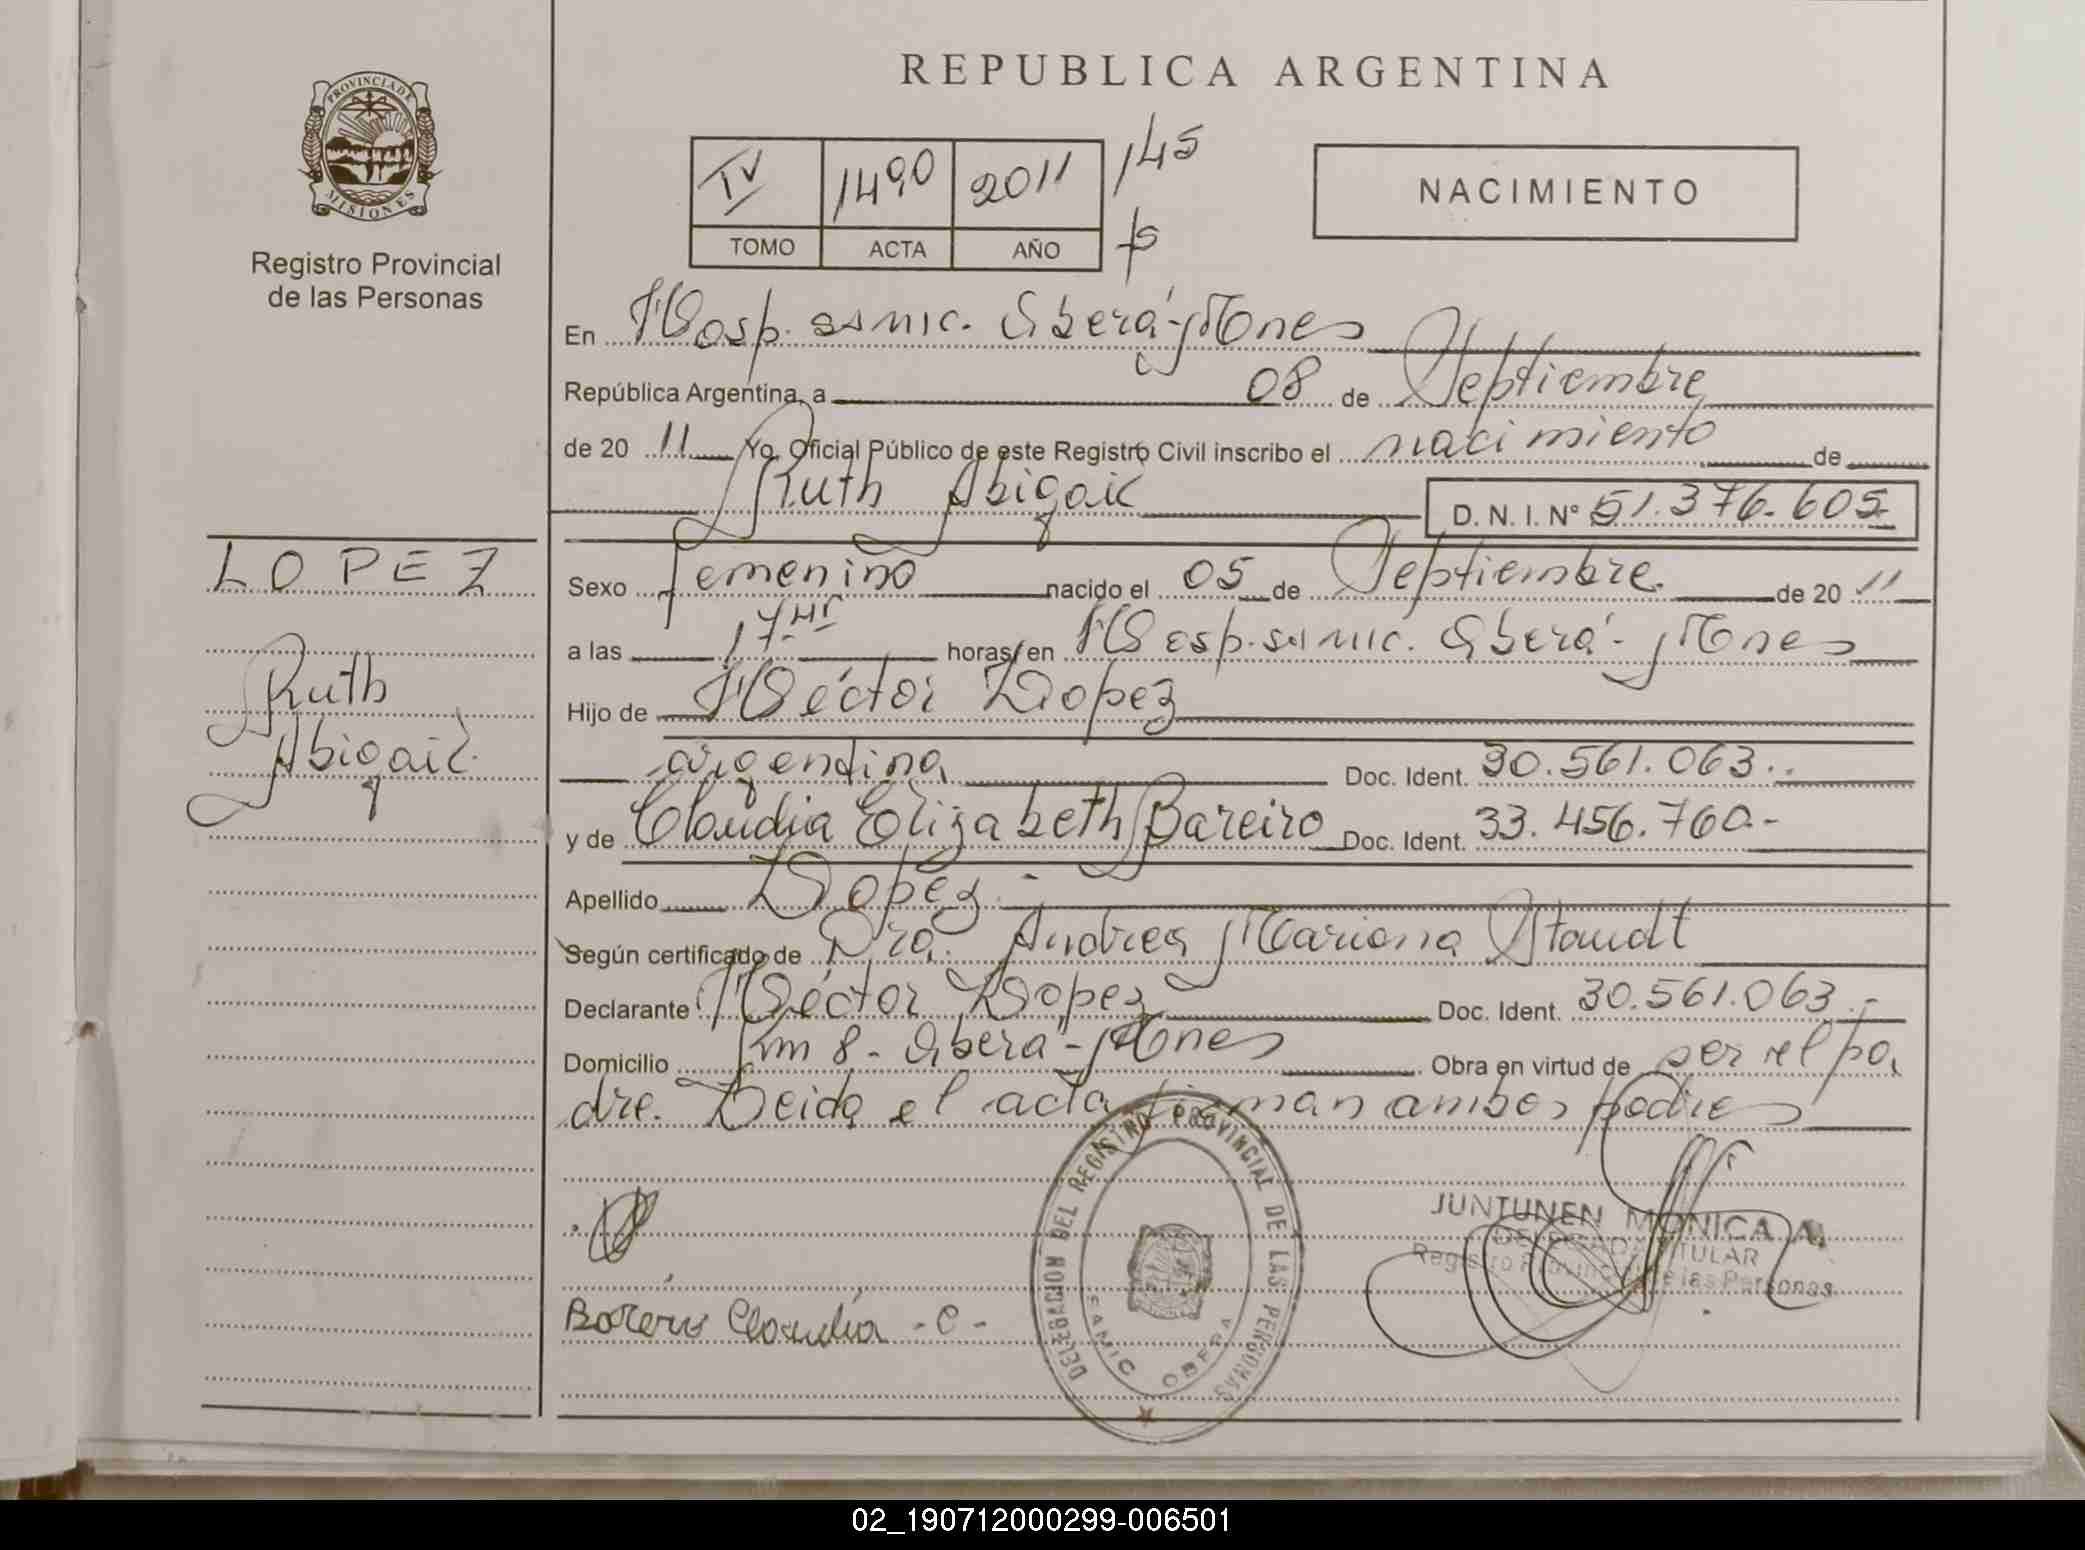 REPUBLICA ARGENTINA
PROVINCIA DE MISIONES
Registro Provincial
de las Personas
IV 1490 2011 145
TOMO ACTA AÑO
NACIMIENTO
En Hosp. samic. Oberá-Mnes
República Argentina, a 08 de Septiembre
de 20 11 Yo, Oficial Público de este Registro Civil inscribo el nacimiento de
Ruth Abigail D. N. I. Nº 51.376.605
LOPEZ
Ruth
Abigail
Sexo femenino nacido el 05 de Septiembre. de 20 11
a las 17.Hs horas, en Hosp. samic. Oberá-Mnes
Hijo de Héctor Lopez
argentina Doc. Ident. 30.561.063.-
y de Claudia Elizabeth Bareiro Doc. Ident. 33.456.760.-
Apellido Lopez.-
Según certificado de Dra. Andrea Mariana Staudt
Declarante Héctor Lopez Doc. Ident. 30.561.063.-
Domicilio Km 8- Oberá-Mnes Obra en virtud de ser el pa
dre. Leida el acta firman ambos padres
DELEGACION DEL REGISTRO PROVINCIAL DE LAS PERSONAS
SAMIC OBERA
JUNTUNEN MONICA A.
DELEGADA TITULAR
Registro Provincial de las Personas
Bareiro Claudia -E-
02_190712000299-006501